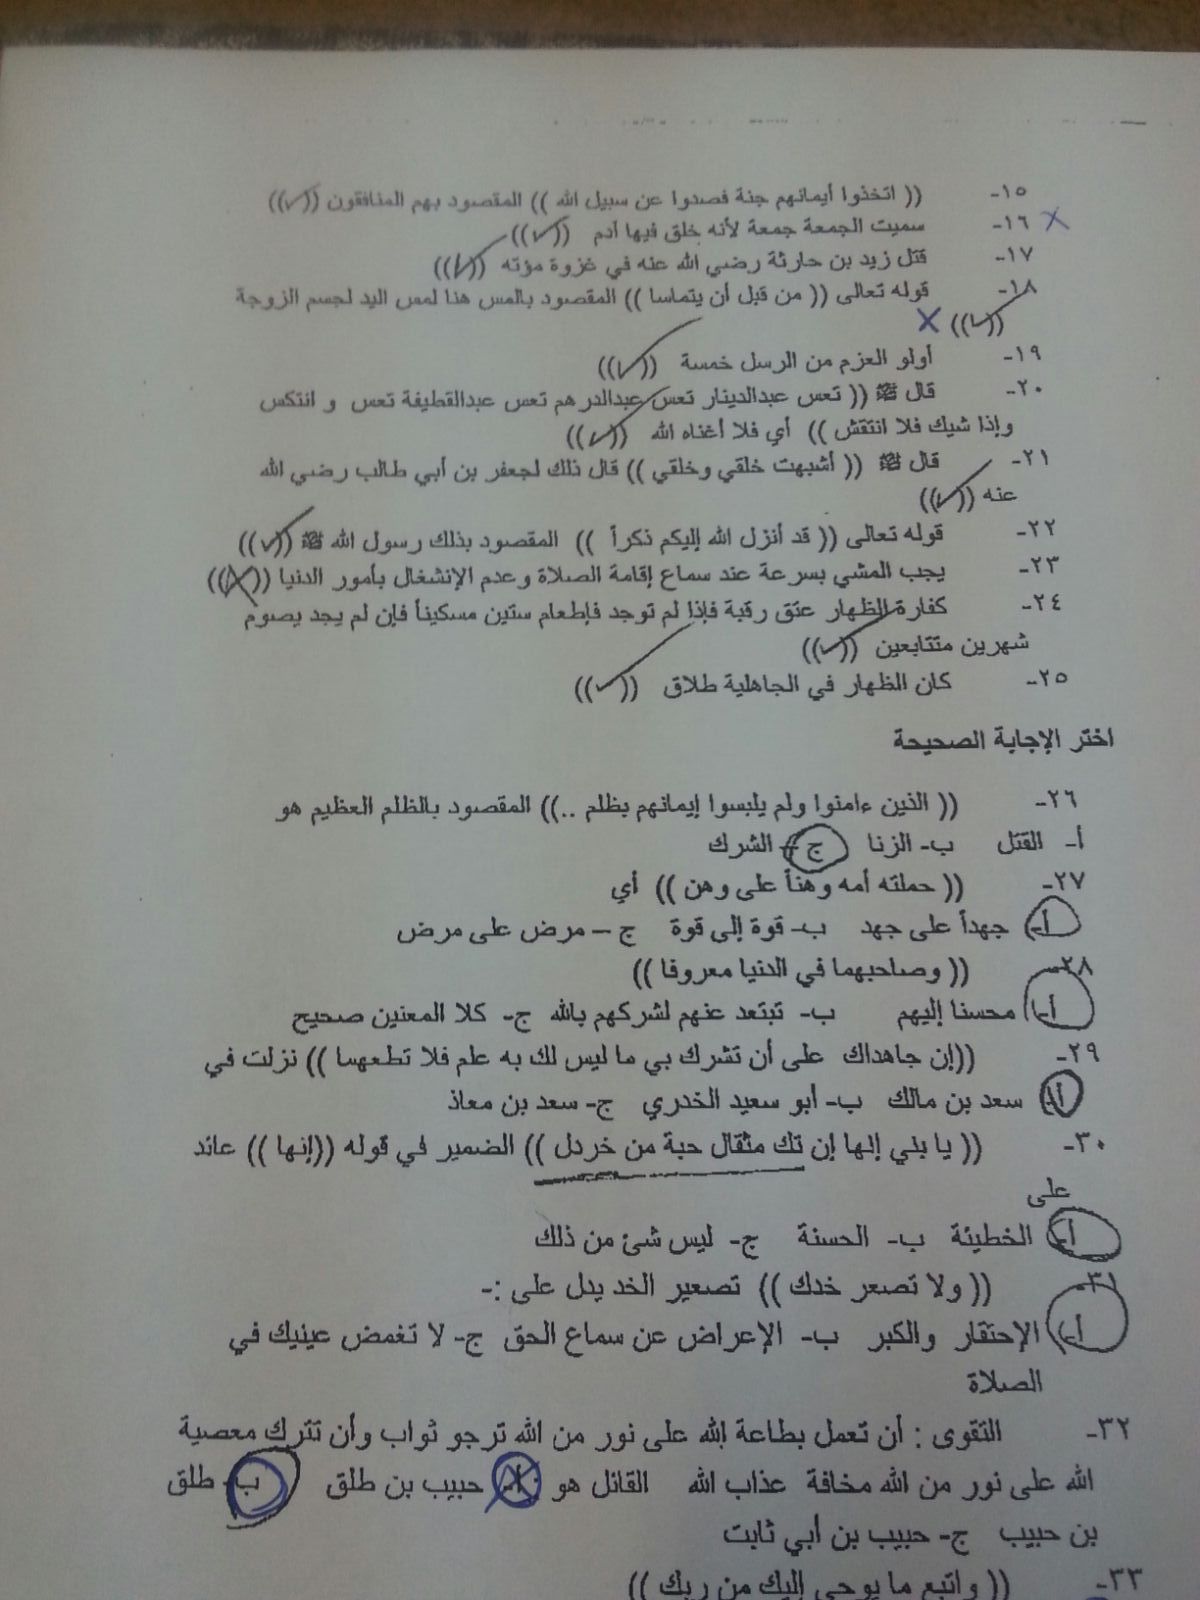 ١٥- (( اتخذوا أيمانهم جنة فصدوا عن سبيل الله )) المقصود بهم المنافقون ((✓))
X ١٦- سميت الجمعة جمعة لأنه خلق فيها آدم ((✓))
١٧- قتل زيد بن حارثة رضي الله عنه في غزوة مؤته ((✓))
١٨- قوله تعالى (( من قبل أن يتماسا )) المقصود بالمس هنا لمس اليد لجسم الزوجة
((✓)) X
١٩- أولو العزم من الرسل خمسة ((✓))
٢٠- قال ﷺ (( تعس عبدالدينار تعس عبدالدرهم تعس عبدالقطيفة تعس و انتكس
وإذا شيك فلا انتقش )) أي فلا أغناه الله ((✓))
٢١- قال ﷺ (( أشبهت خلقي وخلقي )) قال ذلك لجعفر بن أبي طالب رضي الله
عنه ((✓))
٢٢- قوله تعالى (( قد أنزل الله إليكم ذكراً )) المقصود بذلك رسول الله ﷺ ((✓))
٢٣- يجب المشي بسرعة عند سماع إقامة الصلاة وعدم الإنشغال بأمور الدنيا ((X))
٢٤- كفارة الظهار عتق رقبة فإذا لم توجد فإطعام ستين مسكيناً فإن لم يجد يصوم
شهرين متتابعين ((✓))
٢٥- كان الظهار في الجاهلية طلاق ((✓))
اختر الإجابة الصحيحة
٢٦- (( الذين ءامنوا ولم يلبسوا إيمانهم بظلم ..)) المقصود بالظلم العظيم هو
أ- القتل ب- الزنا ج – الشرك
٢٧- (( حملته أمه وهناً على وهن )) أي
أ- جهداً على جهد ب- قوة إلى قوة ج – مرض على مرض
٢٨- (( وصاحبهما في الدنيا معروفا ))
أ- محسنا إليهم ب- تبتعد عنهم لشركهم بالله ج- كلا المعنين صحيح
٢٩- ((إن جاهداك على أن تشرك بي ما ليس لك به علم فلا تطعهما )) نزلت في
أ- سعد بن مالك ب- أبو سعيد الخدري ج- سعد بن معاذ
٣٠- (( يا بني إنها إن تك مثقال حبة من خردل )) الضمير في قوله ((إنها )) عائد
على
أ- الخطيئة ب- الحسنة ج- ليس شئ من ذلك
٣١- (( ولا تصعر خدك )) تصعير الخد يدل على :-
أ- الإحتقار والكبر ب- الإعراض عن سماع الحق ج- لا تغمض عينيك في
الصلاة
٣٢- التقوى : أن تعمل بطاعة الله على نور من الله ترجو ثواب وأن تترك معصية
الله على نور من الله مخافة عذاب الله القائل هو أ- حبيب بن طلق ب- طلق
بن حبيب ج- حبيب بن أبي ثابت
٣٣- (( واتبع ما يوحى إليك من ربك ))